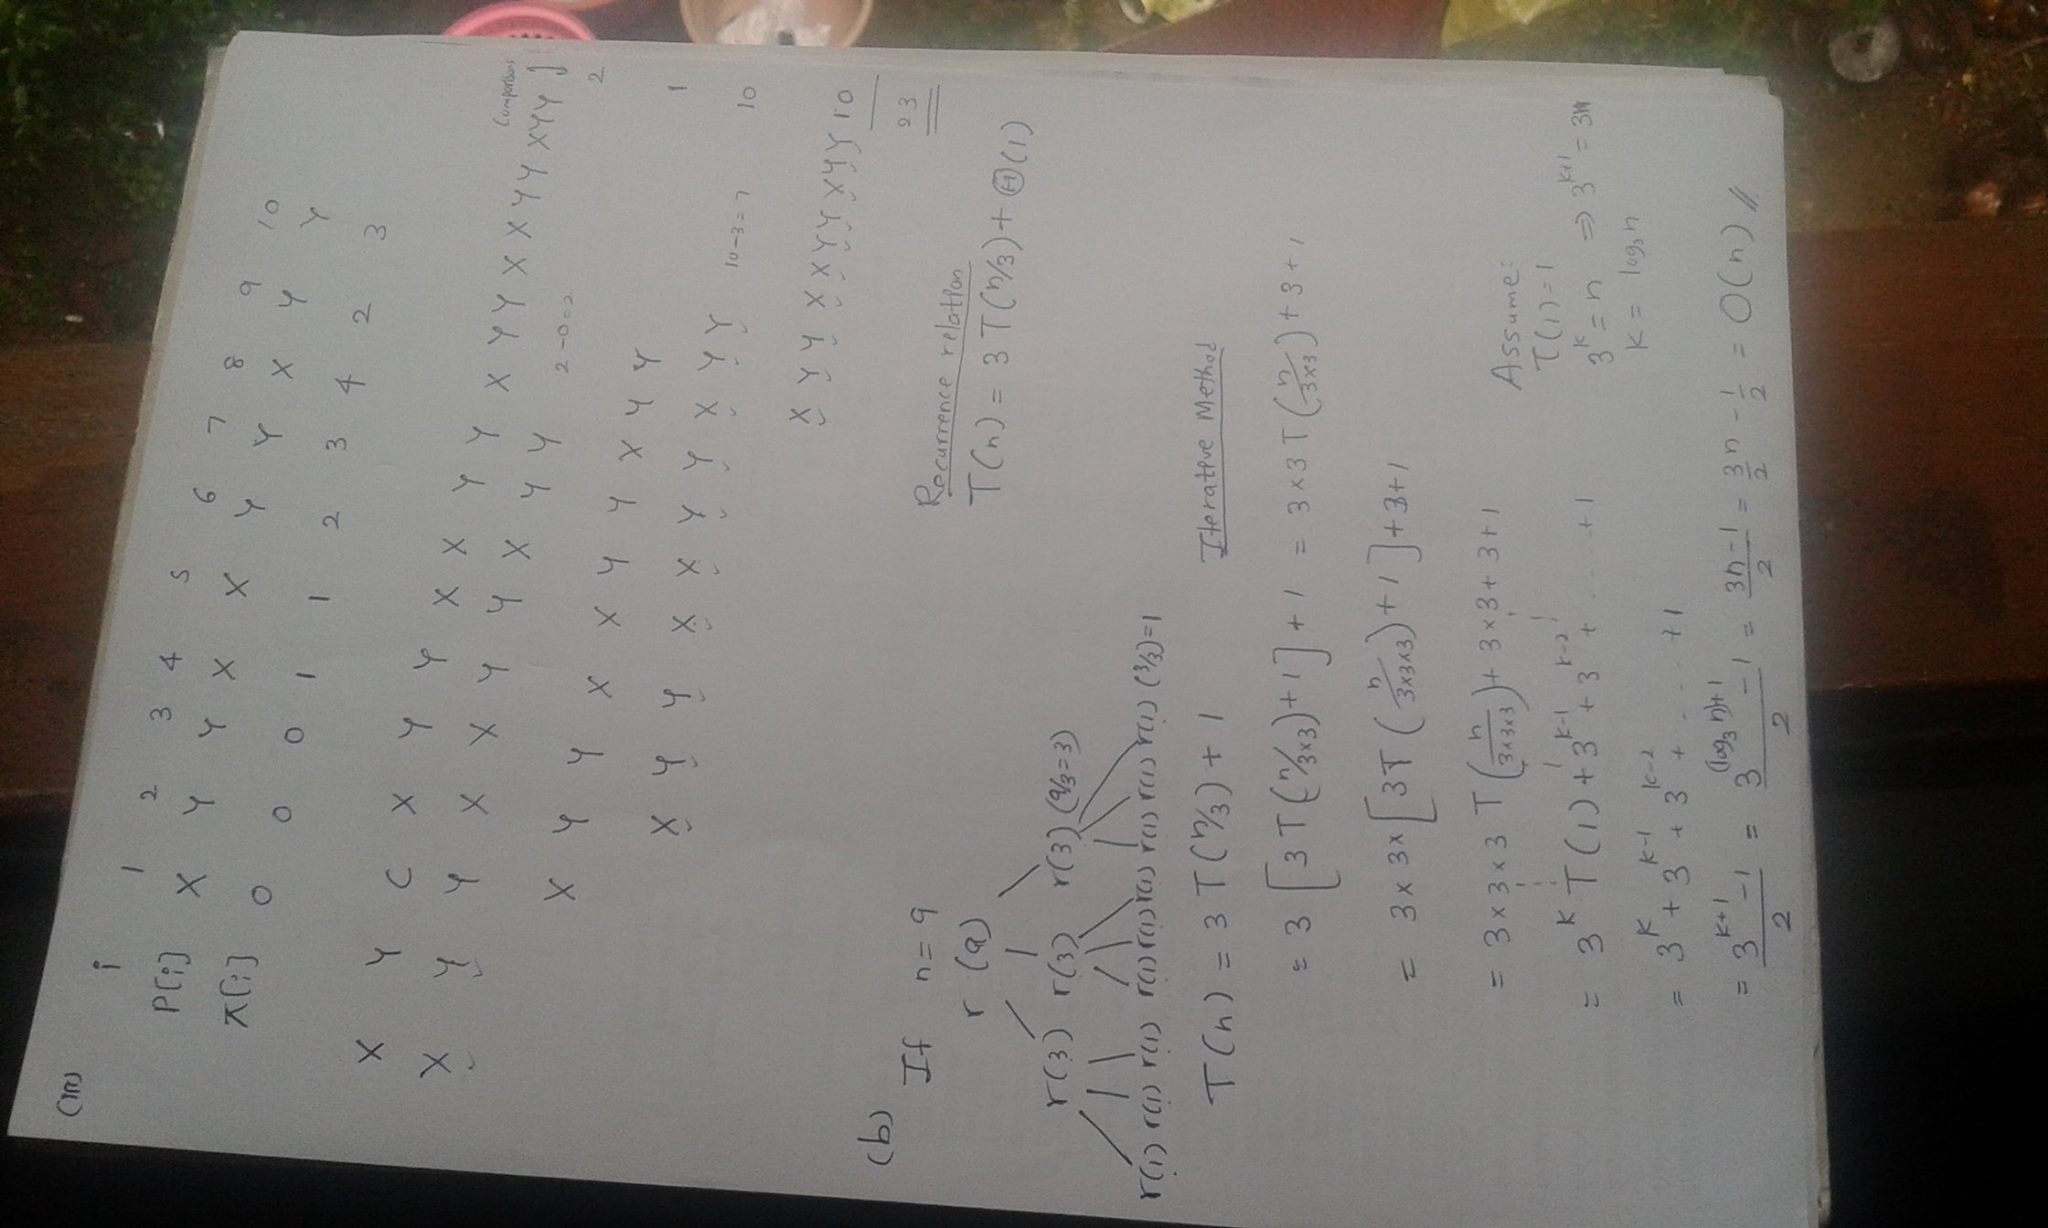 (iii)
i 1 2 3 4 5 6 7 8 9 10
P[i] X Y Y X X Y Y X Y Y
π[i] 0 0 0 1 1 2 3 4 2 3
Comparisons
X Y C X Y Y X X Y Y X Y Y X X Y Y X Y Y
X Y Y X X Y Y X Y Y 2-0=2 2
X Y Y X X Y Y X Y Y 1
X Y Y X X Y Y X Y Y 10-3=7 10
X Y Y X X Y Y X Y Y 10
23
(b)
If n=9
r (9)
r(3) r(3) r(3) (9/3=3)
r(1) r(1) r(1) r(1) r(1) r(1) r(1) r(1) r(1) (3/3)=1
Recurrence relation
T(n) = 3 T(n/3) + Θ(1)
T(n) = 3 T(n/3) + 1
Iterative Method
= 3 [3 T(n/3×3) + 1] + 1 = 3×3 T(n/3×3) + 3 + 1
= 3 × 3 × [3T (n/3×3×3) + 1] + 3 + 1
= 3 × 3 × 3 T (n/3×3×3) + 3 × 3 + 3 + 1
= 3^k T(1) + 3^k-1 + 3^k-2 + . . . . + 1
= 3^k + 3^k-1 + 3^k-2 + . . . . + 1
= 3^k+1 - 1 / 2 = 3^(log₃ n)+1 - 1 / 2 = 3n-1 / 2 = 3/2 n - 1/2 = O(n) //
Assume:
T(1) = 1
3^k = n ⇒ 3^k+1 = 3n
k = log₃n